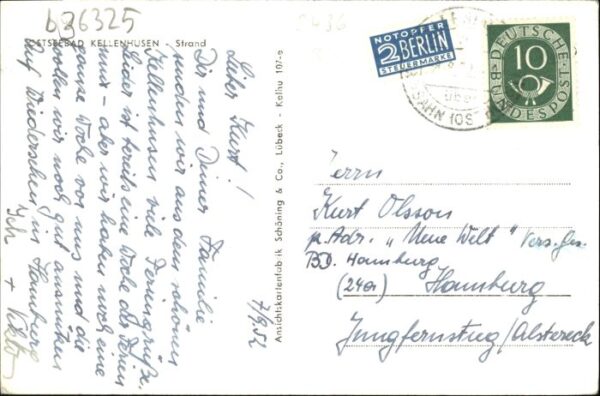 b36325
OSTSEEBAD KELLENHUSEN - Strand
7/9.52
Lieber Kurt!
Dir und Deiner Familie
senden wir aus dem schönen
Kellenhusen viele Feriengrüße.
Leider ist bereits eine Woche der Ferien
um - aber wir haben noch eine
ganze Woche vor uns und die
wollen wir noch gut ausnutzen
Auf Wiedersehen in Hamburg
+
Ansichtskartenfabrik Schöning & Co., Lübeck - Kelhu 107-
NOTOPFER
2 BERLIN
STEUERMARKE
DEUTSCHE
BUNDESPOST
10
Herrn
Kurt Olsson
p. Adr. „Neue Welt" Vers. Ges.
BD. Hamburg
(24a) Hamburg
Jungfernstieg/Alstereck